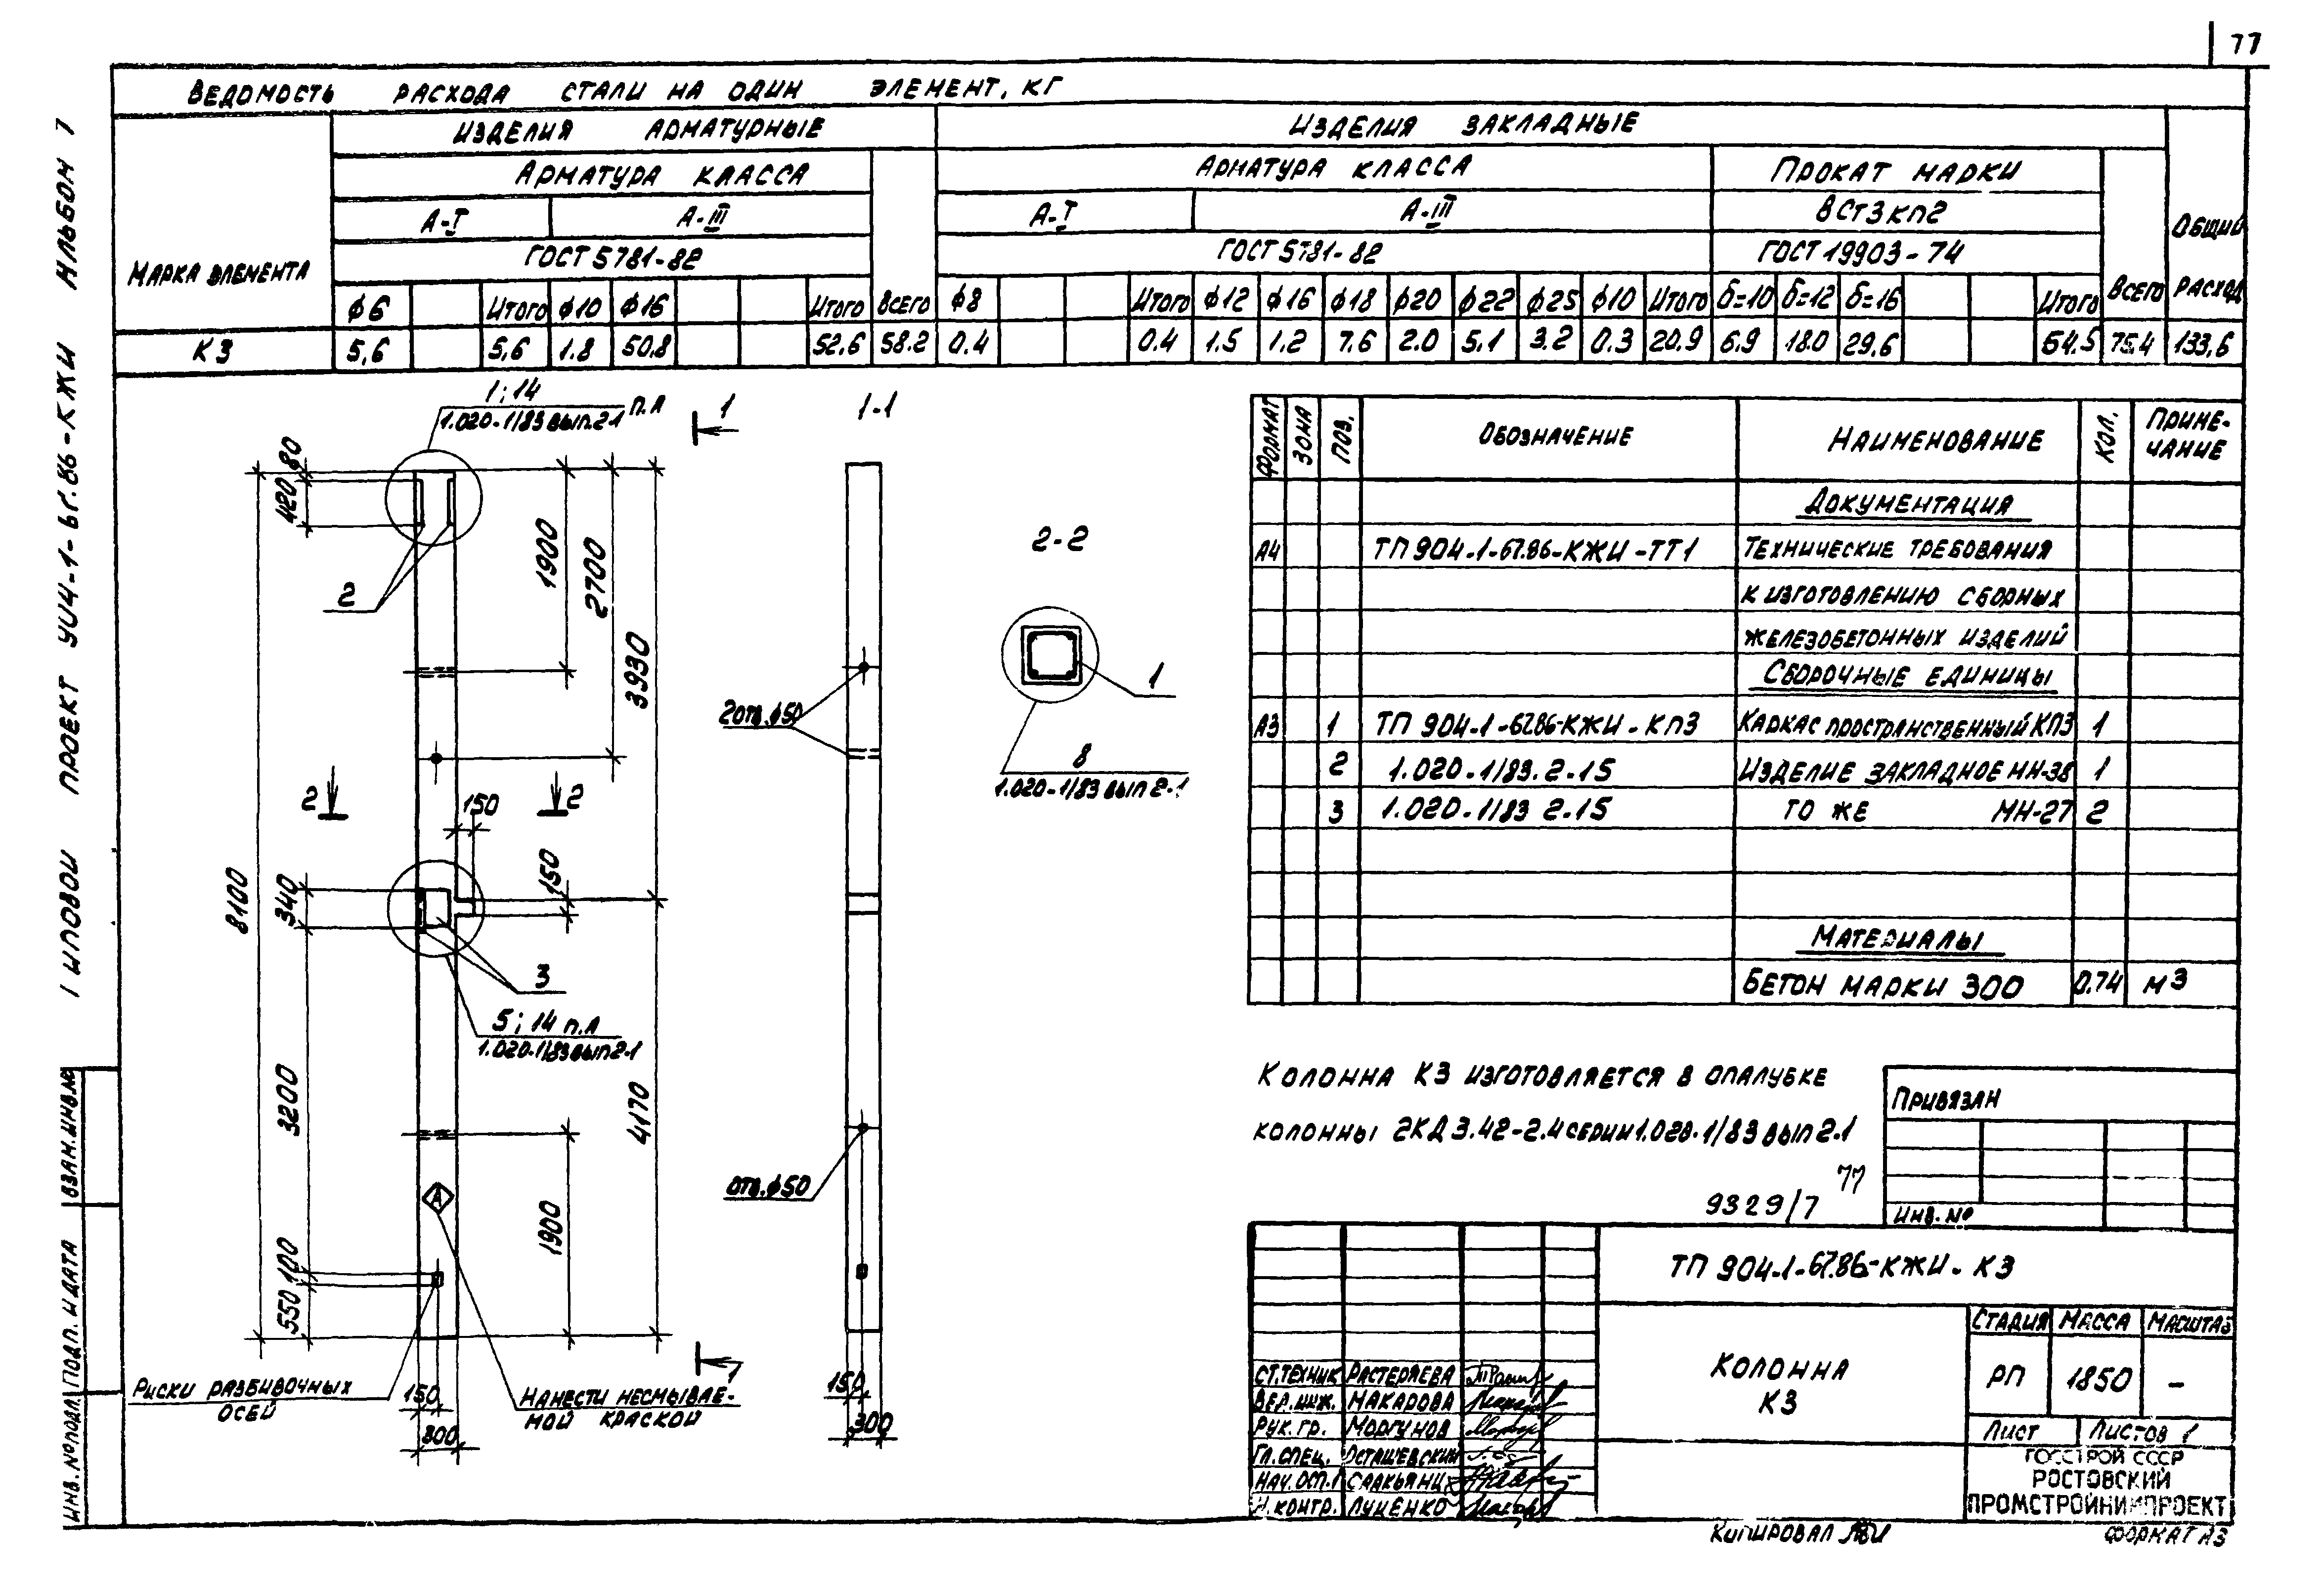 77
ВЕДОМОСТЬ РАСХОДА СТАЛИ НА ОДИН ЭЛЕМЕНТ, КГ
МАРКА ЭЛЕМЕНТА
ИЗДЕЛИЯ АРМАТУРНЫЕ
ИЗДЕЛИЯ ЗАКЛАДНЫЕ
ОБЩИЙ РАСХОД
АРМАТУРА КЛАССА
АРМАТУРА КЛАССА
ПРОКАТ МАРКИ
А-I А-III
А-I А-III
ВСт3кп2
ГОСТ 5781-82
ГОСТ 5781-82
ГОСТ 19903-74
ϕ6 Итого ϕ10 ϕ16 Итого Всего ϕ8 Итого ϕ12 ϕ16 ϕ18 ϕ20 ϕ22 ϕ25 ϕ10 Итого δ=10 δ=12 δ=16 Итого Всего
К3 5.6 5.6 1.8 50.8 52.6 58.2 0.4 0.4 1.5 1.2 7.6 2.0 5.1 3.2 0.3 20.9 6.9 18.0 29.6 54.5 75.4 133.6
1; 14 п.А
1.020-1/83 вып.2-1
1
1-1
80
420
1900
2700
3930
2
2
2
150
150
8100
340
3
5; 14 п.А
1.020-1/83 вып 2-1
3200
4170
А
1900
100
550
РИСКИ РАЗБИВОЧНЫХ
ОСЕЙ
150
300
НАНЕСТИ НЕСМЫВАЕ-
МОЙ КРАСКОЙ
1
2отв.ϕ50
отв.ϕ50
150
300
2-2
1
8
1.020-1/83 вып 2-1
ФОРМАТ ЗОНА ПОЗ. ОБОЗНАЧЕНИЕ НАИМЕНОВАНИЕ КОЛ. ПРИМЕ-
ЧАНИЕ
ДОКУМЕНТАЦИЯ
А4 ТП 904-1-67.86-КЖИ-ТТ1 ТЕХНИЧЕСКИЕ ТРЕБОВАНИЯ
К ИЗГОТОВЛЕНИЮ СБОРНЫХ
ЖЕЛЕЗОБЕТОННЫХ ИЗДЕЛИЙ
СБОРОЧНЫЕ ЕДИНИЦЫ
А3 1 ТП 904-1-67.86-КЖИ-КП3 КАРКАС ПРОСТРАНСТВЕННЫЙ КП3 1
2 1.020-1/83.2-15 ИЗДЕЛИЕ ЗАКЛАДНОЕ МН-38 1
3 1.020-1/83 2-15 ТО ЖЕ МН-27 2
МАТЕРИАЛЫ
БЕТОН МАРКИ 300 0.74 м3
КОЛОННА К3 ИЗГОТОВЛЯЕТСЯ В ОПАЛУБКЕ
КОЛОННЫ 2КД 3.42-2.4 СЕРИИ 1.020-1/83 ВЫП 2.1
77
9329/7
ПРИВЯЗАН
ИНВ. №
ТП 904-1-67.86-КЖИ-К3
КОЛОННА
К3
СТАДИЯ МАССА МАСШТАБ
РП 1850 –
ЛИСТ ЛИСТОВ 1
ГОССТРОЙ СССР
РОСТОВСКИЙ
ПРОМСТРОЙНИИПРОЕКТ
СТ.ТЕХНИК РАСТЕРЯЕВА
ВЕД.ИНЖ. МАКАРОВА
РУК. ГР. МОРГУНОВ
ГЛ.СПЕЦ. ОСТАШЕВСКИЙ
НАЧ.ОСП-1 СААКЬЯНЦ
Н.КОНТР. ЛУЦЕНКО
КОПИРОВАЛ
ФОРМАТ А3
ТИПОВОЙ ПРОЕКТ 904-1-67.86-КЖИ АЛЬБОМ 7
ИНВ. № ПОДЛ. ПОДП. И ДАТА ВЗАМ. ИНВ. №